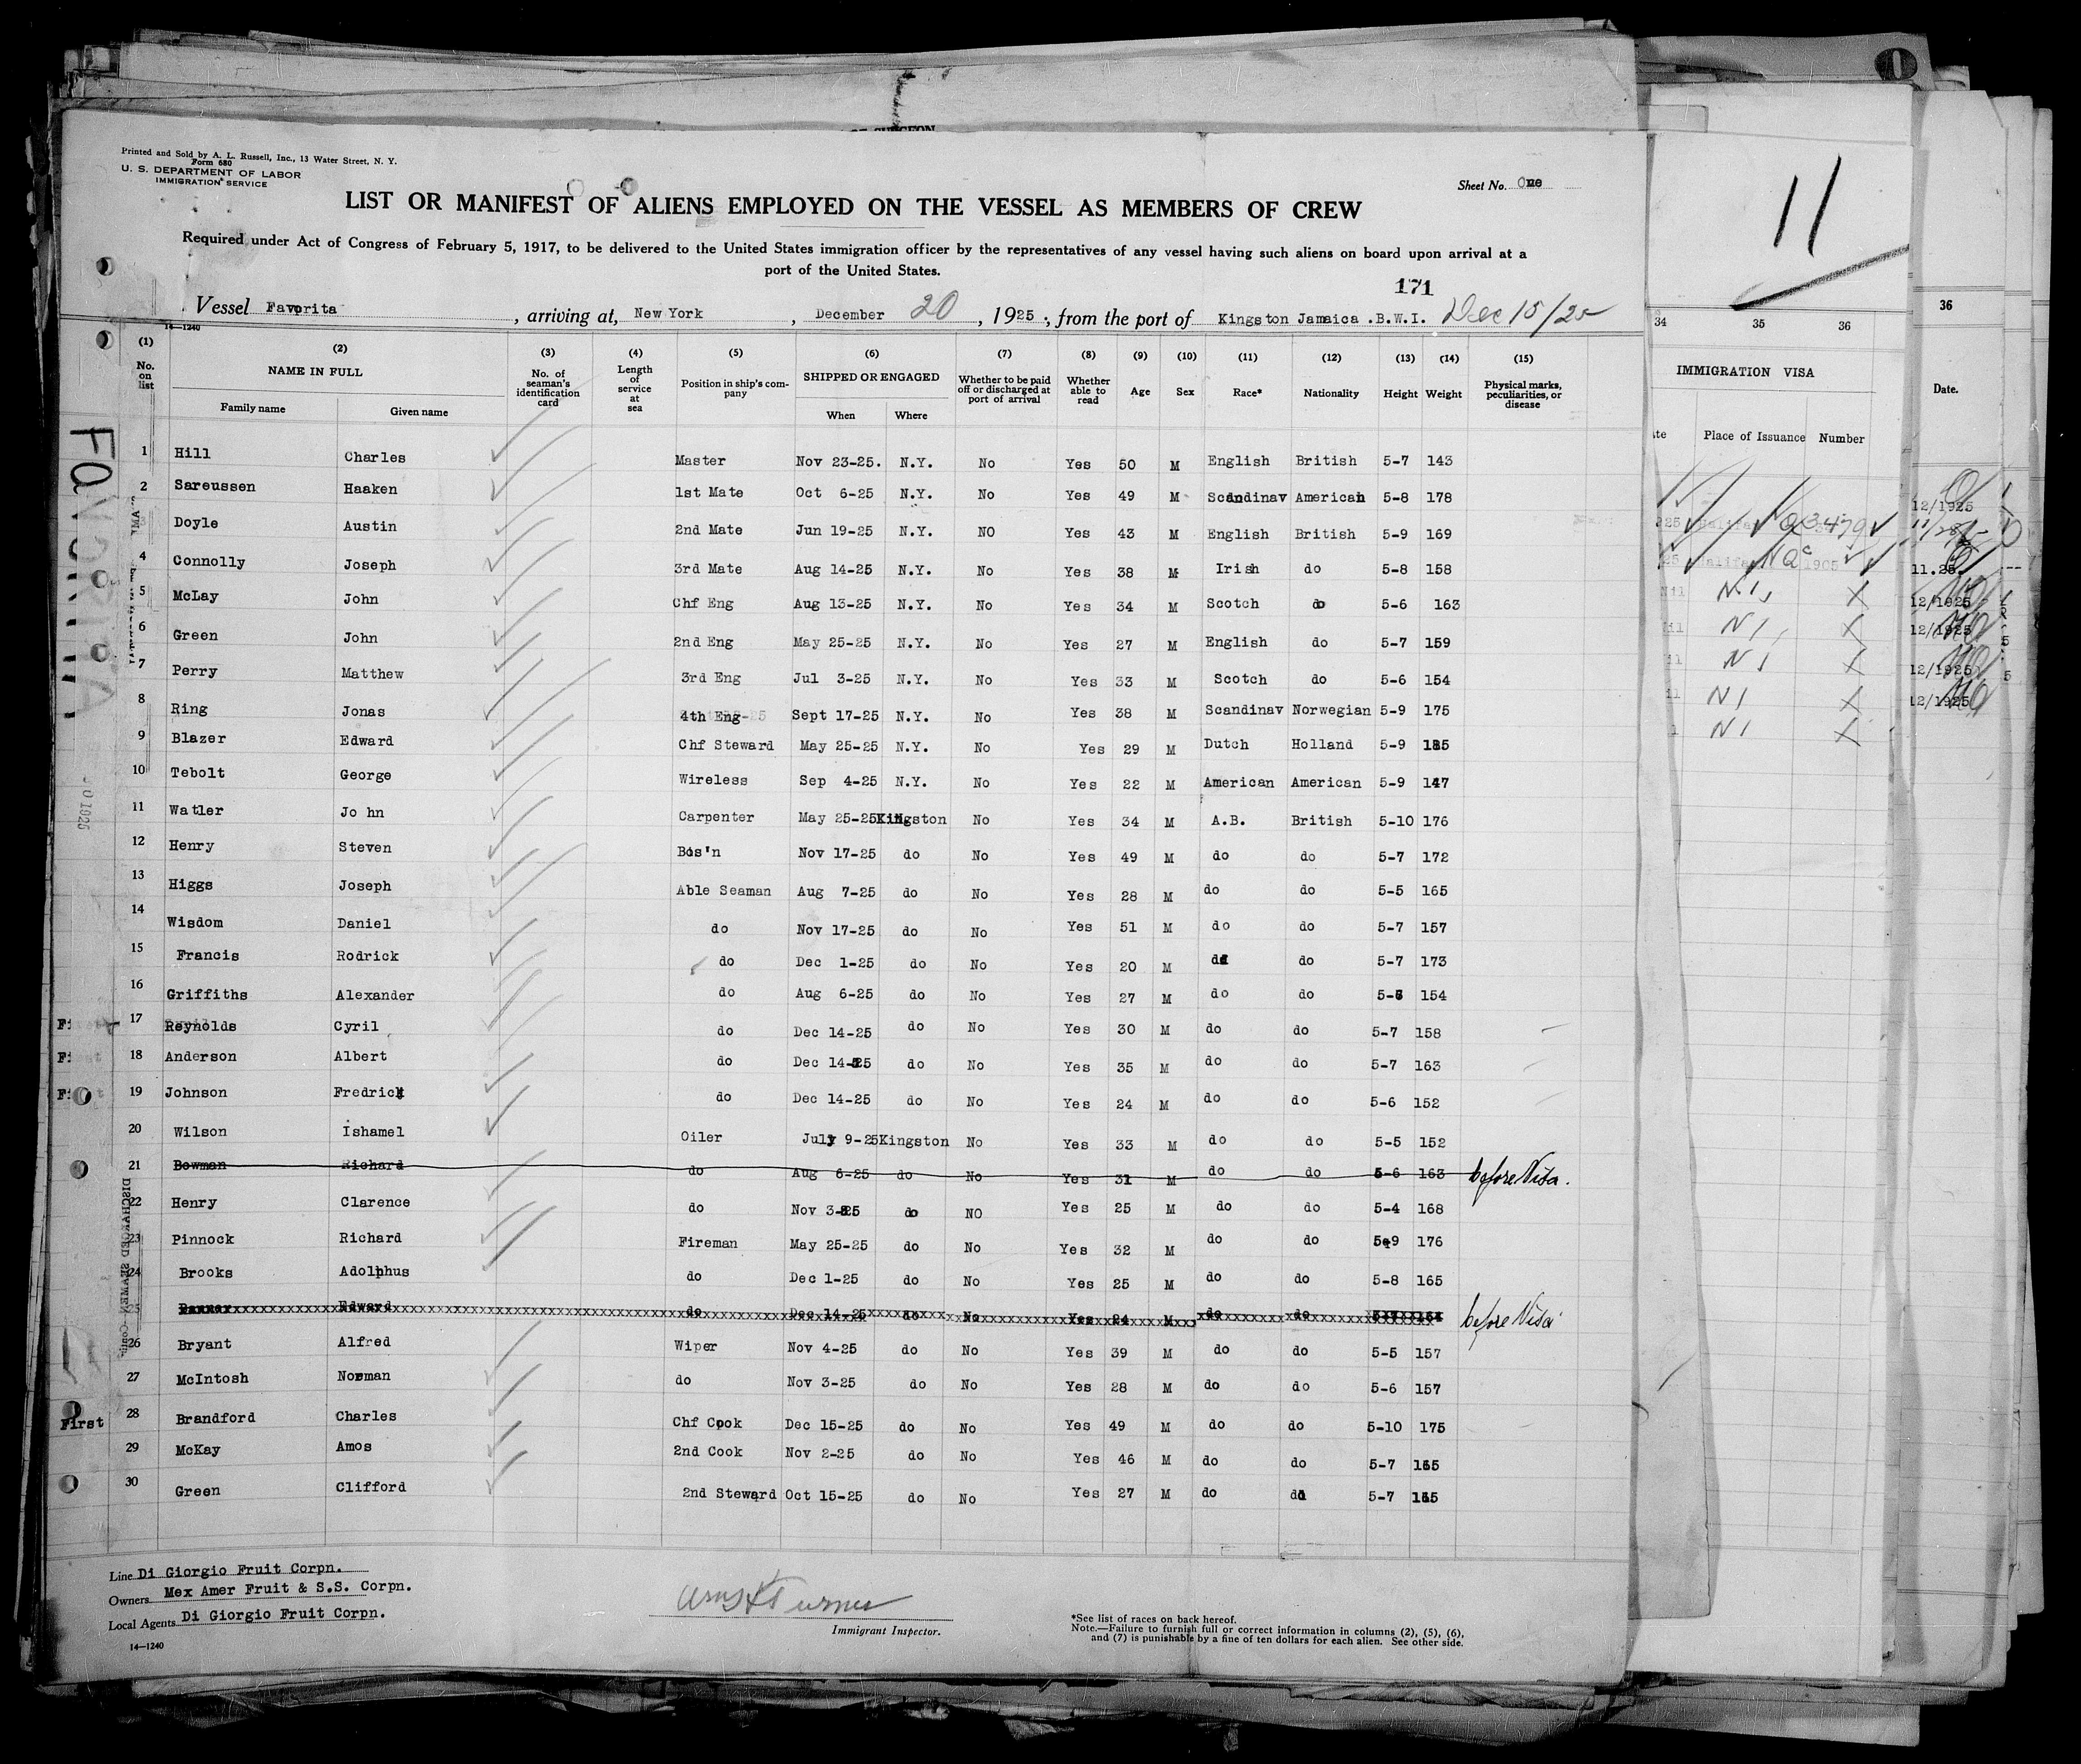 Printed and Sold by A. L. Russell, Inc., 13 Water Street, N. Y.
Form 680
U. S. DEPARTMENT OF LABOR
IMMIGRATION SERVICE
Sheet No. One
LIST OR MANIFEST OF ALIENS EMPLOYED ON THE VESSEL AS MEMBERS OF CREW
Required under Act of Congress of February 5, 1917, to be delivered to the United States immigration officer by the representatives of any vessel having such aliens on board upon arrival at a
port of the United States.
171
Vessel Favorita, arriving at, New York, December 20, 1925, from the port of Kingston Jamaica .B.W.I. Dec 15/25
14—1240
(1) (2) (3) (4) (5) (6) (7) (8) (9) (10) (11) (12) (13) (14) (15)
No. on list NAME IN FULL Family name Given name No. of seaman's identification card Length of service at sea Position in ship's company SHIPPED OR ENGAGED When Where Whether to be paid off or discharged at port of arrival Whether able to read Age Sex Race* Nationality Height Weight Physical marks, peculiarities, or disease
1 Hill Charles Master Nov 23-25. N.Y. No Yes 50 M English British 5-7 143
2 Sareussen Haaken 1st Mate Oct 6-25 N.Y. No Yes 49 M Scandinav American 5-8 178
3 Doyle Austin 2nd Mate Jun 19-25 N.Y. NO Yes 43 M English British 5-9 169
4 Connolly Joseph 3rd Mate Aug 14-25 N.Y. No Yes 38 M Irish do 5-8 158
5 McLay John Chf Eng Aug 13-25 N.Y. No Yes 34 M Scotch do 5-6 163
6 Green John 2nd Eng May 25-25 N.Y. No Yes 27 M English do 5-7 159
7 Perry Matthew 3rd Eng Jul 3-25 N.Y. No Yes 33 M Scotch do 5-6 154
8 Ring Jonas 4th Eng Sept 17-25 N.Y. No Yes 38 M Scandinav Norwegian 5-9 175
9 Blazer Edward Chf Steward May 25-25 N.Y. No Yes 29 M Dutch Holland 5-9 185
10 Tebolt George Wireless Sep 4-25 N.Y. No Yes 22 M American American 5-9 147
11 Watler Jo hn Carpenter May 25-25 Kingston No Yes 34 M A.B. British 5-10 176
12 Henry Steven Bos'n Nov 17-25 do No Yes 49 M do do 5-7 172
13 Higgs Joseph Able Seaman Aug 7-25 do No Yes 28 M do do 5-5 165
14 Wisdom Daniel do Nov 17-25 do No Yes 51 M do do 5-7 157
15 Francis Rodrick do Dec 1-25 do No Yes 20 M do do 5-7 173
16 Griffiths Alexander do Aug 6-25 do No Yes 27 M do do 5-6 154
17 Reynolds Cyril do Dec 14-25 do No Yes 30 M do do 5-7 158
18 Anderson Albert do Dec 14-25 do No Yes 35 M do do 5-7 163
19 Johnson Fredrick do Dec 14-25 do No Yes 24 M do do 5-6 152
20 Wilson Ishamel Oiler July 9-25 Kingston No Yes 33 M do do 5-5 152
21 Bowman Richard do Aug 6-25 do No Yes 31 M do do 5-6 163 before Visa.
22 Henry Clarence do Nov 3-25 do NO Yes 25 M do do 5-4 168
23 Pinnock Richard Fireman May 25-25 do No Yes 32 M do do 5-9 176
24 Brooks Adolphus do Dec 1-25 do No Yes 25 M do do 5-8 165
25 Edward do Dec 14-25 do No Yes 24 M do do before Visa
26 Bryant Alfred Wiper Nov 4-25 do No Yes 39 M do do 5-5 157
27 McIntosh Norman do Nov 3-25 do No Yes 28 M do do 5-6 157
First 28 Brandford Charles Chf Cook Dec 15-25 do No Yes 49 M do do 5-10 175
29 McKay Amos 2nd Cook Nov 2-25 do No Yes 46 M do do 5-7
30 Green Clifford 2nd Steward Oct 15-25 do No Yes 27 M do do 5-7
Line Di Giorgio Fruit Corpn.
Owners Mex Amer Fruit & S.S. Corpn.
Local Agents Di Giorgio Fruit Corpn.
14—1240
Immigrant Inspector.
*See list of races on back hereof.
Note.—Failure to furnish full or correct information in columns (2), (5), (6),
and (7) is punishable by a fine of ten dollars for each alien. See other side.
FAVORITA
DISCHARGED SEAMEN
11
34 35 36
IMMIGRATION VISA
Place of Issuance Number
36
Date.
12/1925
11.25
12/1925
12/1925
12/1925
12/1925